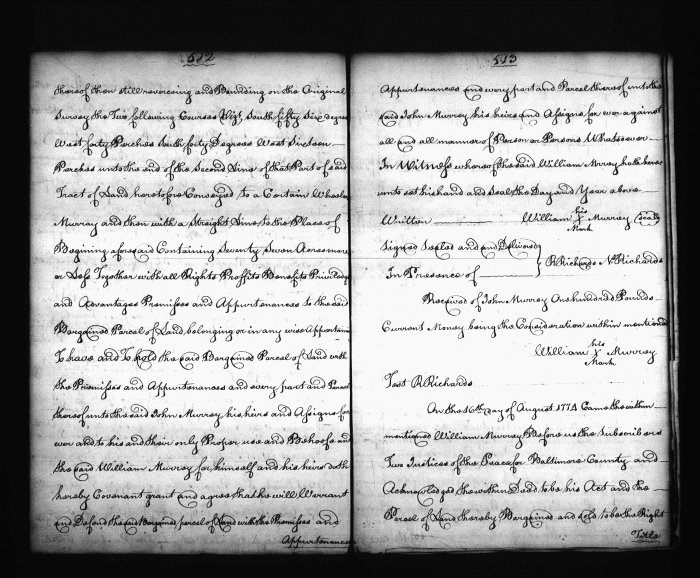 512
thereof then still reverceing and Bounding on the Original
Survey the Two following Courses Vizt South fifty Six degrees
West forty Perches South forty Degrees West Sixteen
Perches unto the end of the Second Line of that Part of said
Tract of Land heretofore Conveyed to a Certain Wheeler
Murray and then with a Straight Line to the Place of
Begining aforesaid Containing Seventy Seven Acres more
or Less Together with all Rights Proffits Benefits Priviledges
and Advantages Premisses and Appurtenances to the said
Bargained Parcel of Land belonging or in any wise appertain
To have and To hold the said Bargained Parcel of Land with
the Premisses and Appurtenances and every part and Parcel
thereof unto the said John Murray his heirs and Assigns for
ever and to his and their only Proper use and Behoofe and
the said William Murray for himself and his heirs doth
hereby Covenant grant and agree that he will Warrant
and Defend the said Bargained parcel of Land with the Premisses and
Appurtenances
513
Appurtenances and every part and Parcel thereof unto the
said John Murray his heirs and Assigns for ever against
all and all manner of Person or Persons Whatsoever
In Witness whereof the said William Murray hath here
unto set his hand and Seal the Day and Year above
Written William his X Mark Murray (Seal)
Signed Sealed and Delivered
In Presence of } R Richards N Richards
Received of John Murray One hundred Pounds
Current Money being the Consideration within mentioned
William his X Mark Murray
Test R Richards
On the 16th day of August 1774 Came the within
mentioned William Murray Before us the Subscribers
Two Justices of the Peace for Baltimore County and
Acknowledged the within Deed to be his Act and the
Parcel of Land thereby Bargained and Sold to be the Right
Title